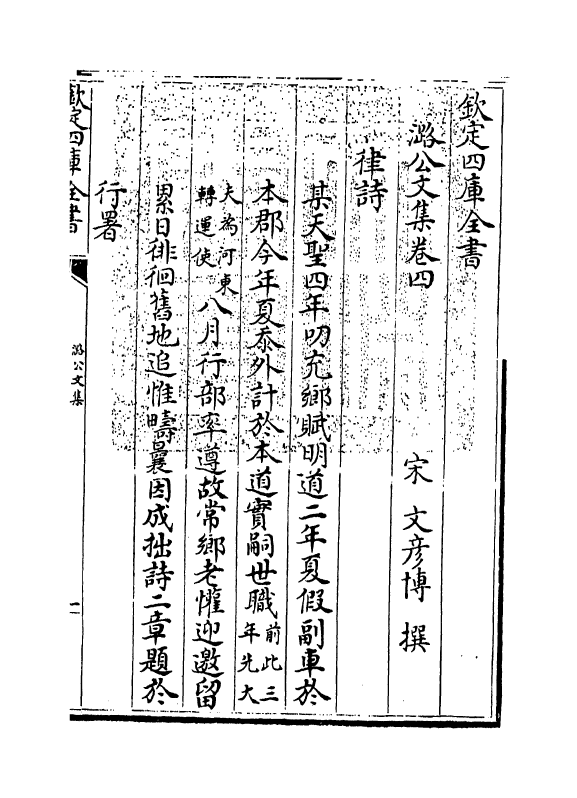 欽定四庫全書
潞公文集卷四
宋 文彦博 撰
律詩
某天聖四年叨充鄉賦明道二年夏假副車於
本郡今年夏忝外計於本道實嗣世職前此三年先大
夫為河東轉運使八月行部率遵故常鄉老懽迎邀留
累日徘徊舊地追惟疇曩因成拙詩二章題於
行署
欽定四庫全書
潞公文集
一